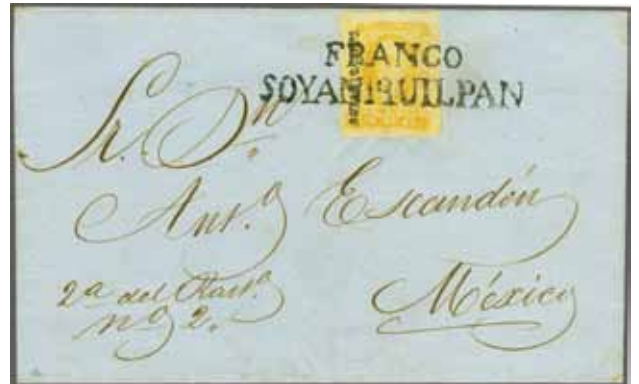 FRANCO
SOYANIQUILPAN
Sr. Dn
Anto. Escandón
2a del
no 2.
México